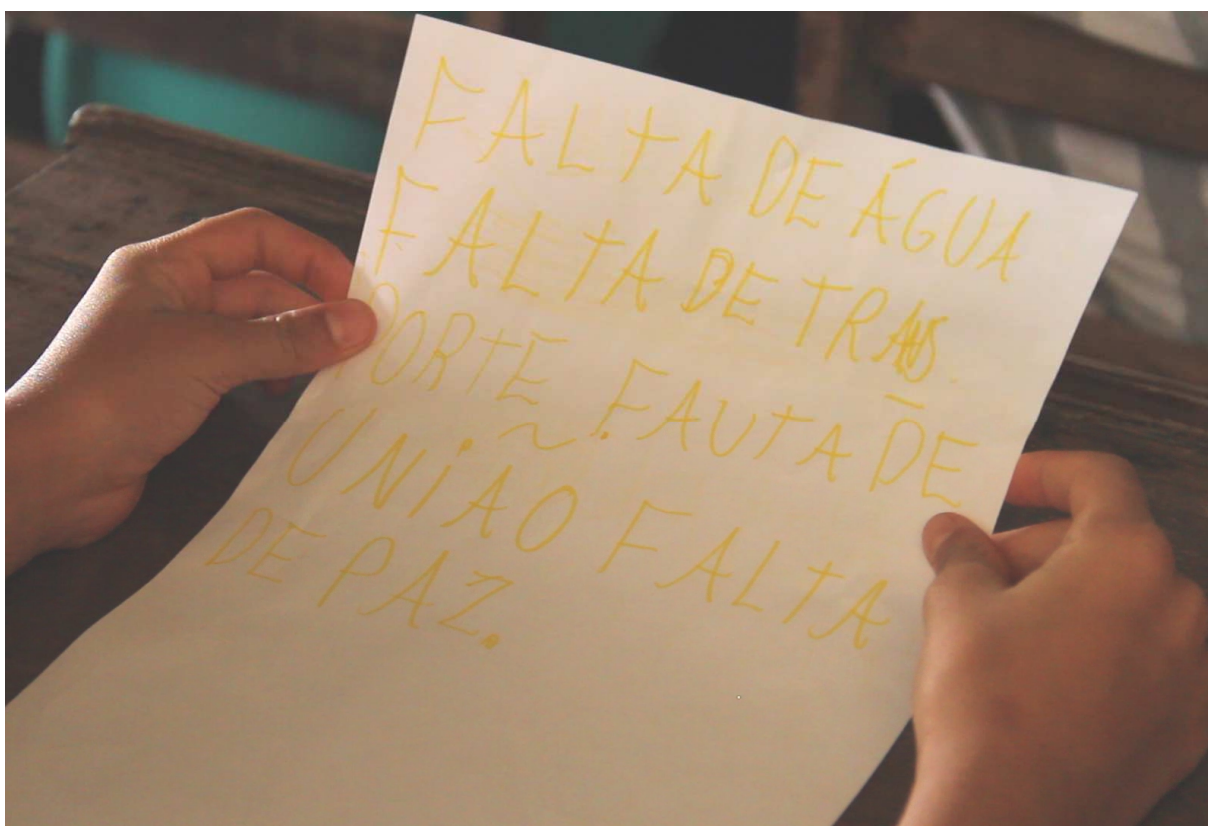 FALTA DE ÁGUA
FALTA DE TRANS.
PORTE. FAUTA DE
UNIÃO FALTA
DE PAZ.